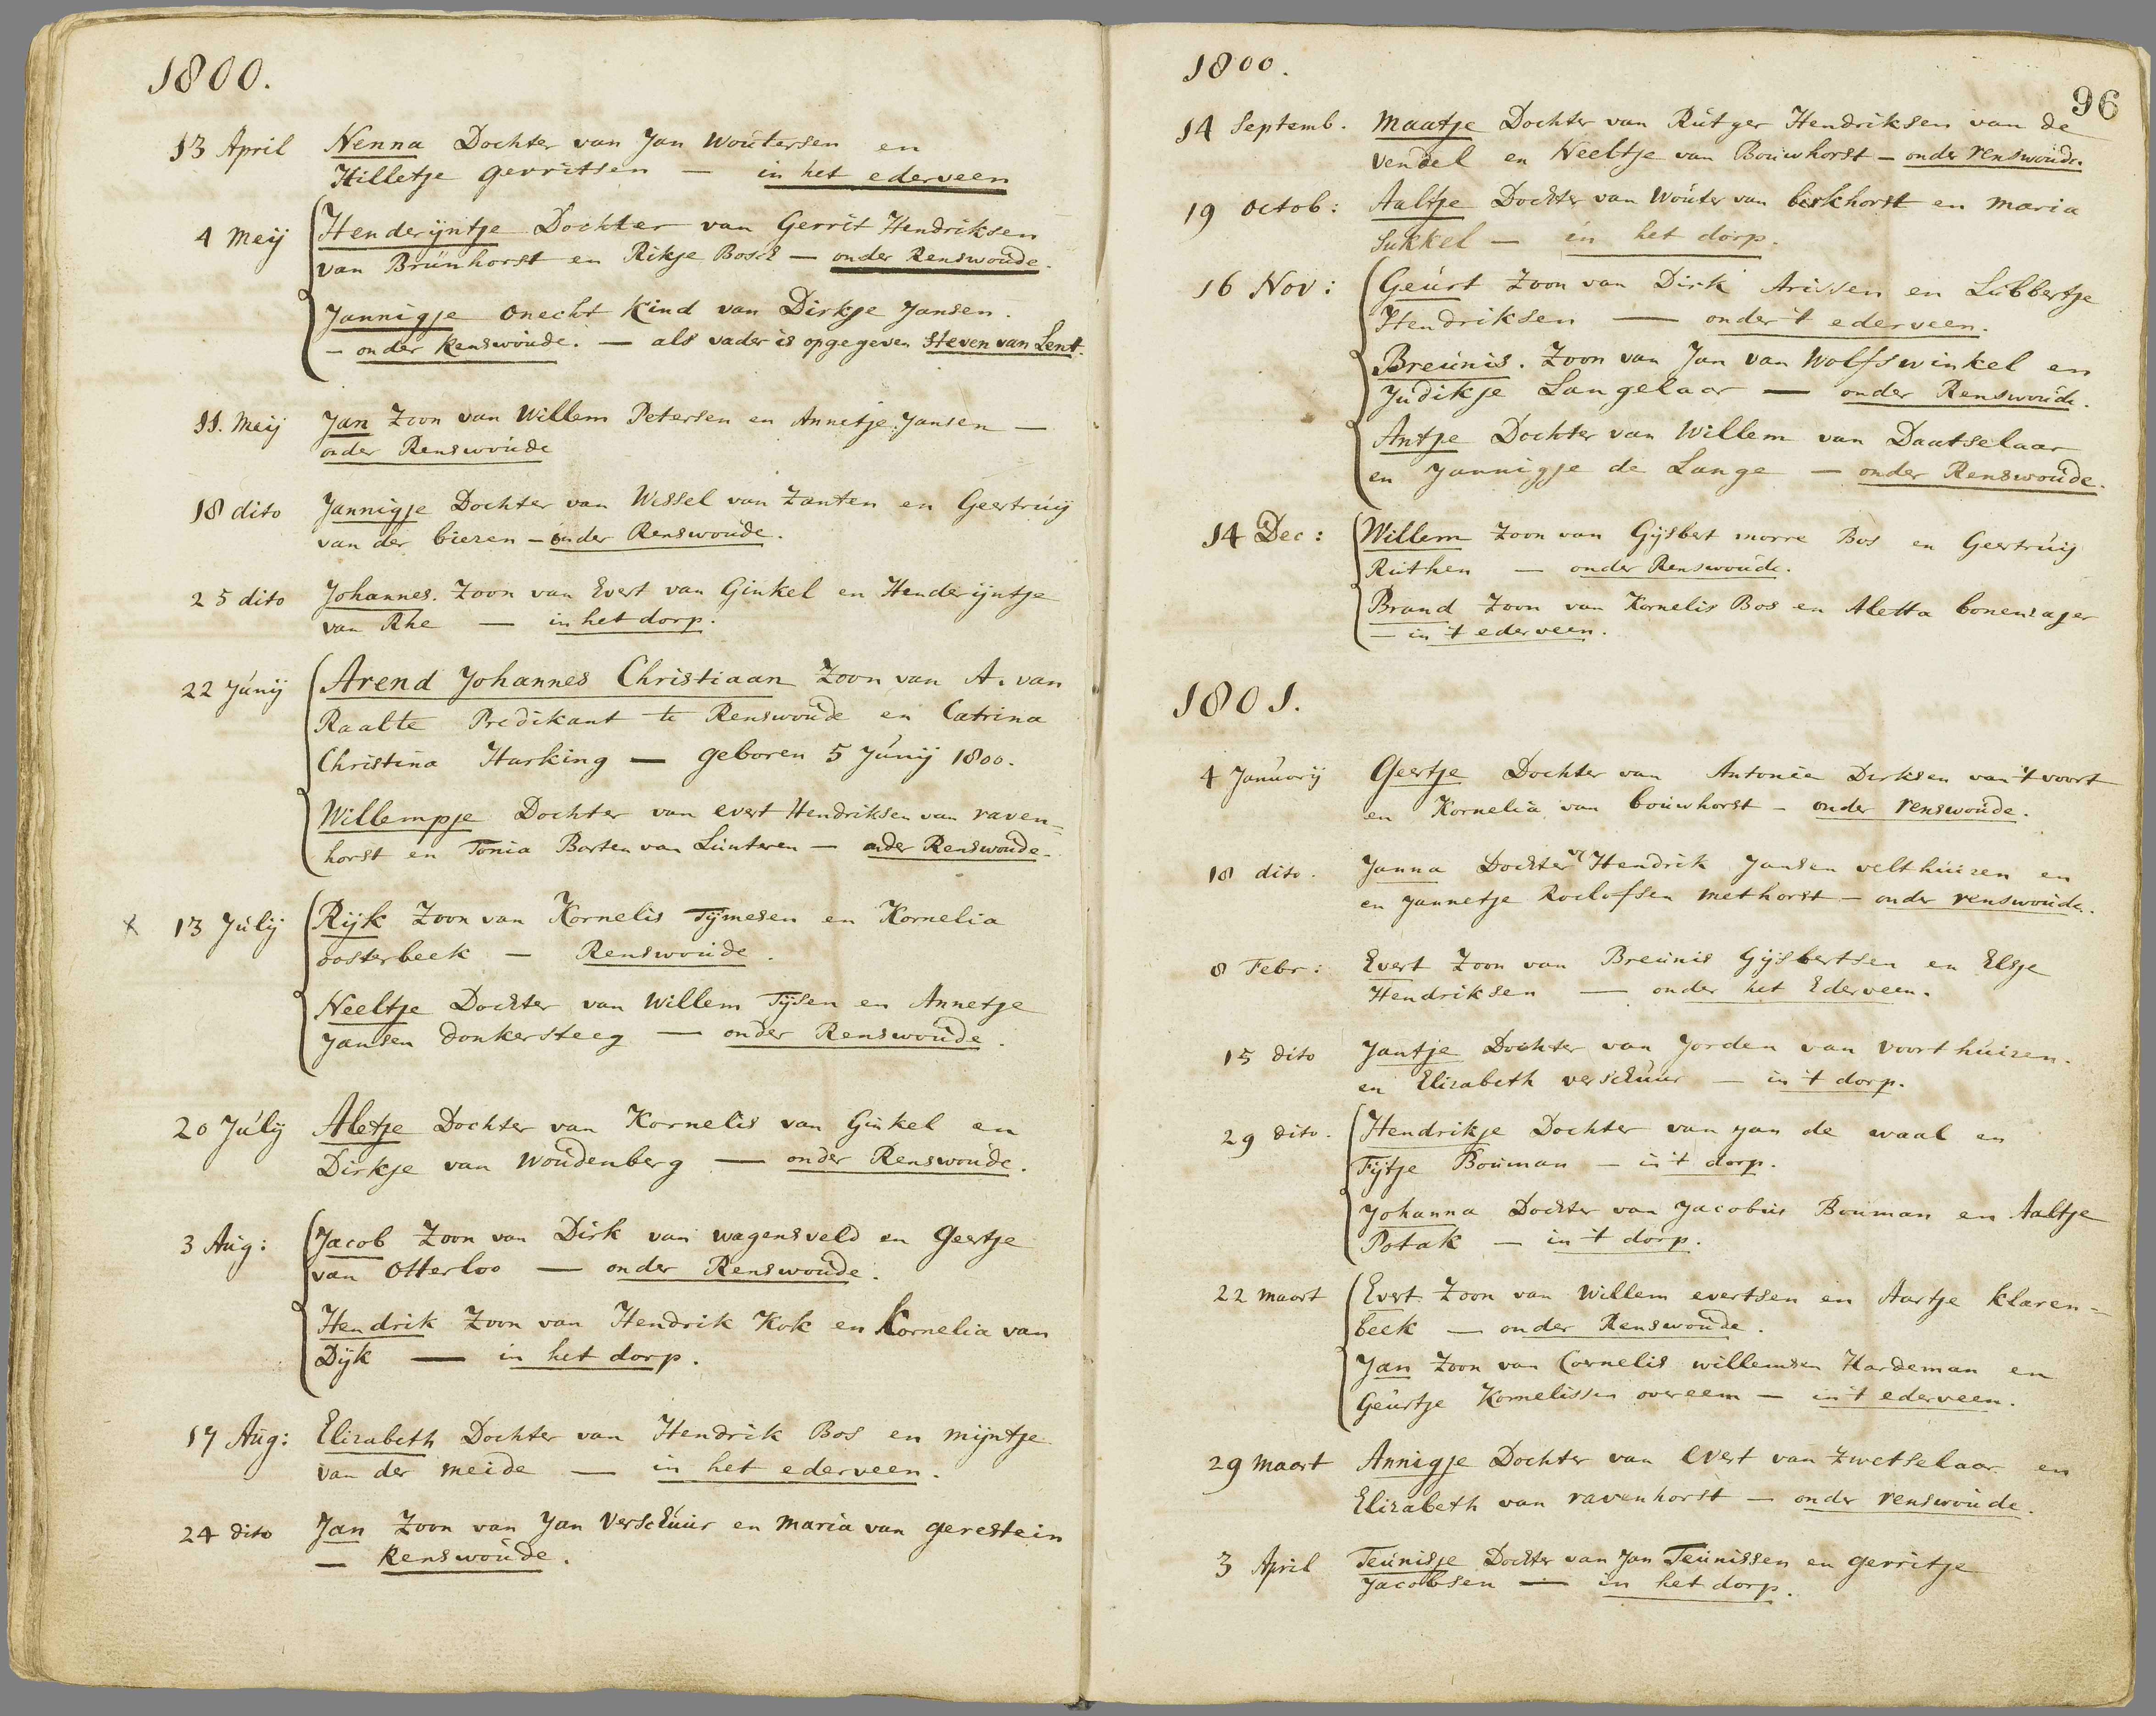 1800.
13 April Nenna Dochter van Jan Woutersen en
Hilletje gerritsen — in het ederveen
4 Meij Henderijntje Dochter van Gerrit Hendriksen
van Brunhorst en Rikje Bosch — onder Renswoude.
Jannigje onecht kind van Dirkje Jansen.
— onder Renswoude. — als vader is opgegeven Steven van Lent.
11. Meij Jan Zoon van Willem Petersen en Annetje Jansen —
onder Renswoude
18 dito Jannigje Dochter van Wessel van Zanten en Geertruij
van der biezen — onder Renswoude.
25 dito Johannes. Zoon van Evert van Ginkel en Henderijntje
van Rhe — in het dorp.
22 Junij Arend Johannes Christiaan Zoon van A. van
Raalte Predikant te Renswoude en Catrina
Christina Harking — geboren 5 Junij 1800.
Willempje Dochter van evert Hendriksen van raven=
horst en Tonia Barten van Lunteren — onder Renswoude.
x 13 Julij Rijk Zoon van Kornelis Tijmesen en Kornelia
oosterbeek — Renswoude.
Neeltje Dochter van Willem Tijsen en Annetje
Jansen donkersteeg — onder Renswoude.
20 Julij Aletje Dochter van Kornelis van Ginkel en
Dirkje van Woudenberg — onder Renswoude.
3 Aug: Jacob Zoon van Dirk van wagensveld en Geertje
van Otterloo — onder Renswoude.
Hendrik Zoon van Hendrik Kok en Kornelia van
Dijk — in het dorp.
17 Aug: Elizabeth Dochter van Hendrik Bos en mijntje
van der meide — in het ederveen.
24 dito Jan Zoon van Jan Verschuur en maria van gerestein
— Renswoude.
1800.
96
14 Septemb. Maatje Dochter van Rutger Hendriksen van de
vendel en Neeltje van Bouwhorst — onder renswoude.
19 octob: Aaltje Dochter van Wouter van berkhorst en maria
Sukkel — in het dorp.
16 Nov: Geurt Zoon van Dirk Arissen en Lubbertje
Hendriksen — onder 't ederveen.
Breunis. Zoon van Jan van Wolfswinkel en
Judikje Langelaar — onder Renswoude.
Antje Dochter van Willem van Daatselaar
en Jannigje de Lange — onder Renswoude.
14 Dec: Willem Zoon van Gijsbert morre Bos en Geertruij
Ruthen — onder Renswoude.
Brand Zoon van Kornelis Bos en Aletta bonenzajer
— in 't ederveen.
1801.
4 Januarij Geertje Dochter van Antonie Derksen van 't voort
en Kornelia van bouwhorst — onder renswoude.
18 dito. Janna Dochter vn Hendrik Jansen velthuizen en
en Jannetje Roelofsen methorst — onder renswoude.
8 Febr: Evert Zoon van Breunis Gijsbertsen en Elsje
Hendriksen — onder het Ederveen.
15 dito Jantje Dochter van Jorden van voorthuizen.
en Elizabeth verschuur — in 't dorp.
29 dito. Hendrikje Dochter van yan de waal en
Fijtje Bouman — in 't dorp.
Johanna Dochter van Jacobus Bouman en Aaltje
Potak — in 't dorp.
22 maart Evert Zoon van Willem evertsen en Aartje klaren=
beek — onder Renswoude.
Jan Zoon van Cornelis willemsen Hardeman en
Geurtje Kornelissen overeem — in 't ederveen.
29 maart Annigje Dochter van Evert van Zwetselaar en
Elizabeth van ravenhorst — onder renswoude.
3 April Teunisje Dochter van Jan Teunissen en gerritje
Jacobsen — in het dorp.